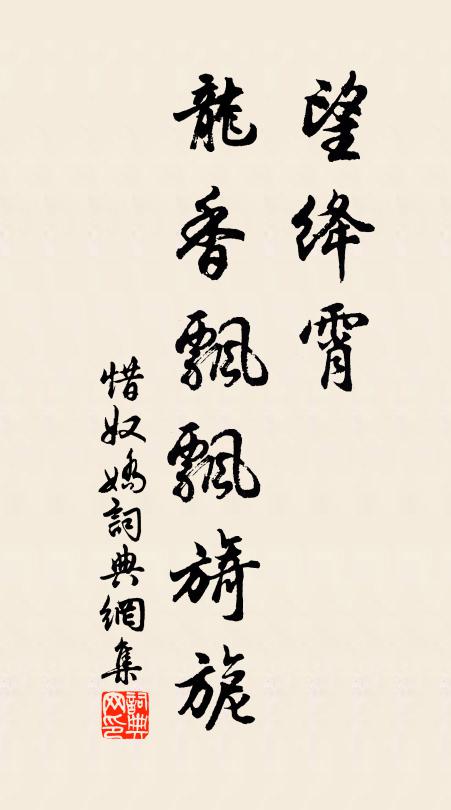 望絳霄
龍香飄飄旖旎
惜奴嬌詞典網集
詞典
网印